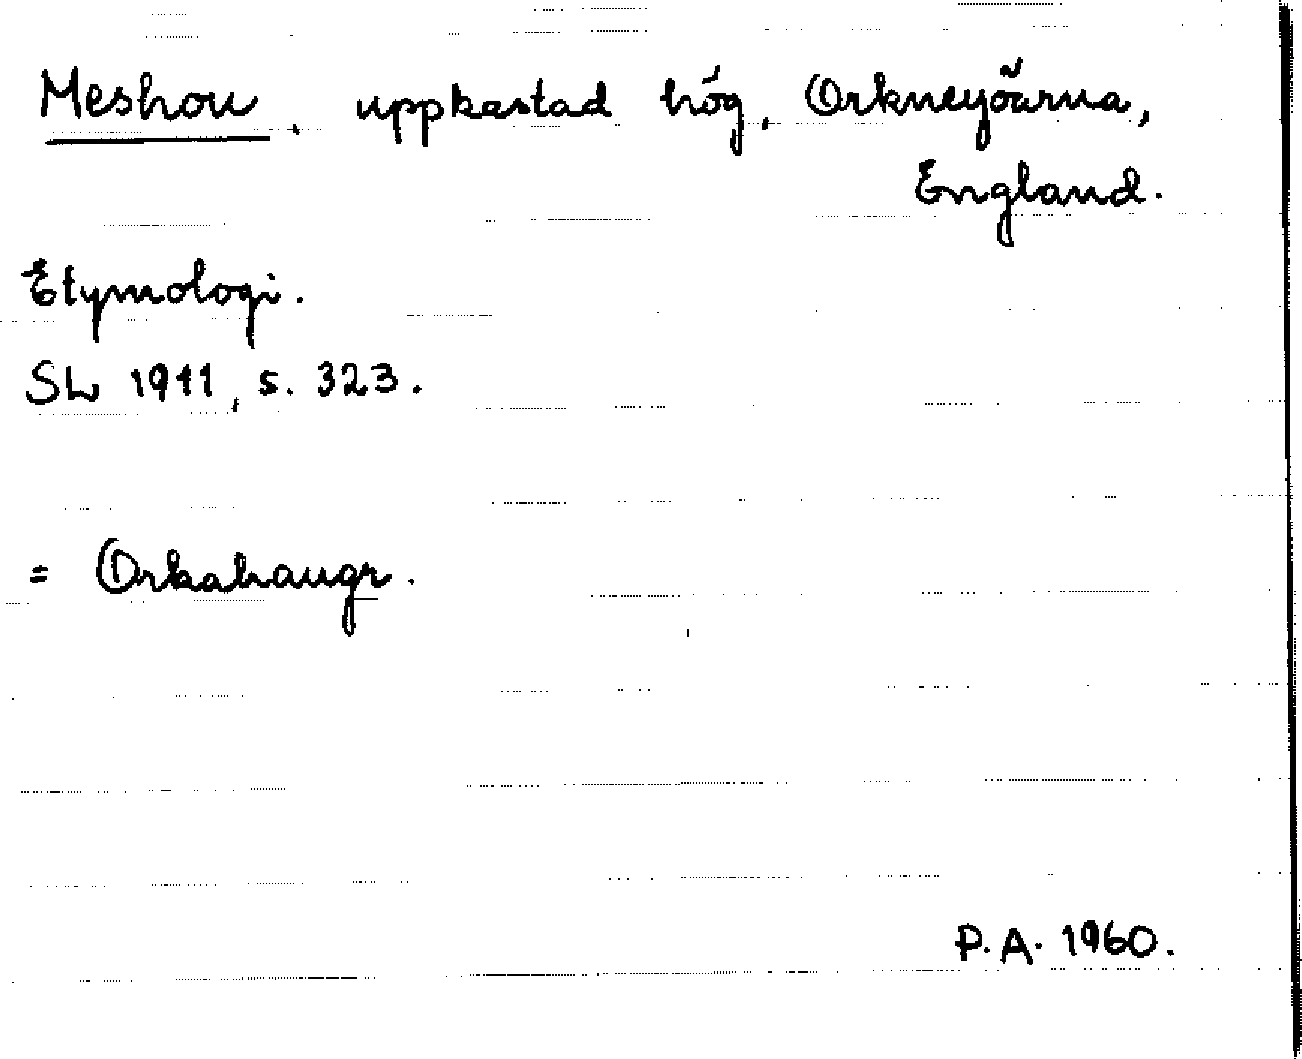 Meshou, uppkastad hög, Orkneyöarna,
England.
Etymologi.
SL 1911, s. 323.
= Orkahaugr.
P.A. 1960.